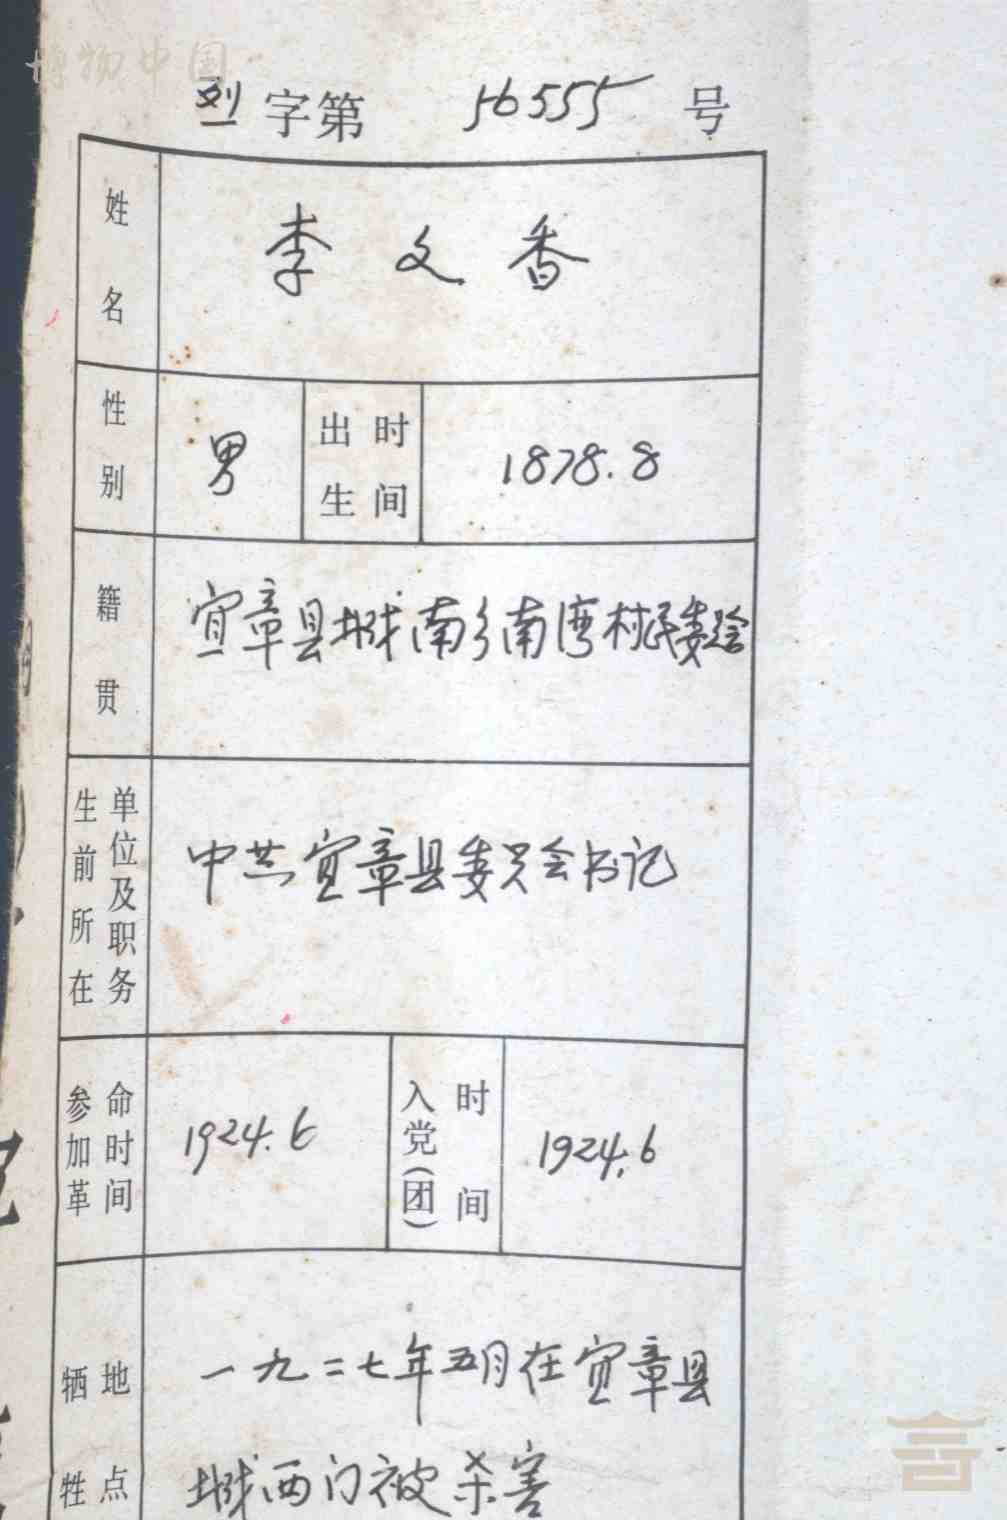 博物中国
烈字第 56555 号
姓名 李文香
性别 男 出生时间 1878.8
籍贯 宜章县城南乡南湾村民委会
生前所在单位及职务 中共宜章县委员会书记
参加革命时间 1924.6 入党(团)时间 1924.6
牺牲地点 一九二七年五月在宜章县
城西门被杀害